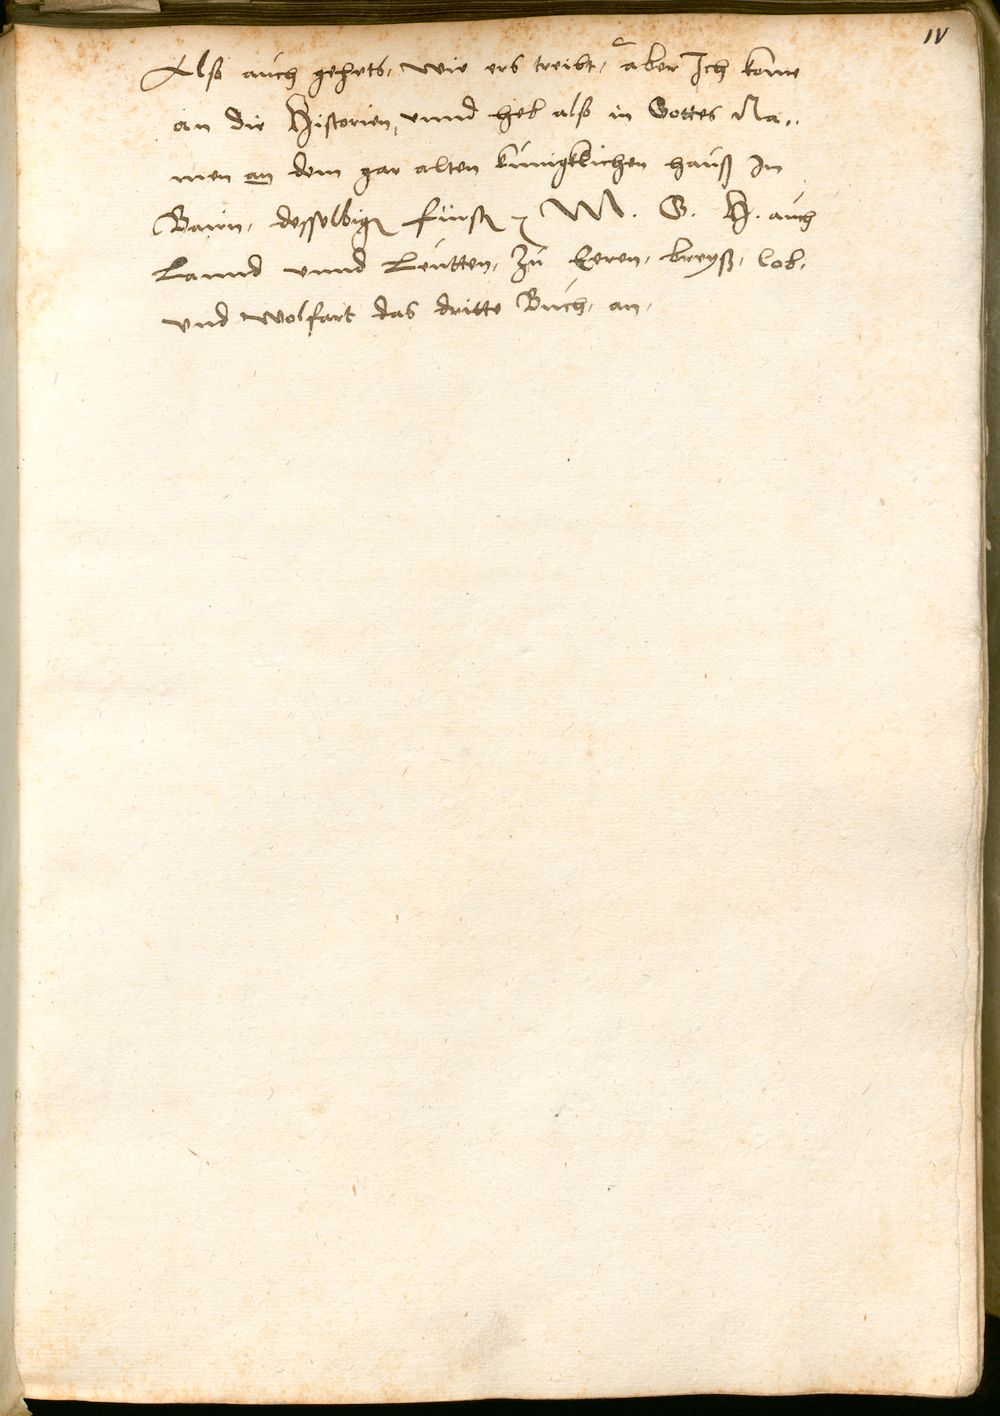 IV
Also auch gehets, wie ers treibt, aber Ich kome
an die Historien, unnd heb also in Gottes Na„
men an dem gar alten künigklichen hauß In
Bairn, desselbigen fürsten M. G. H. auch
Lannd unnd Leutten, Zu Eeren, breyß, lob,
vnd wolfart das dritte Buch, an,